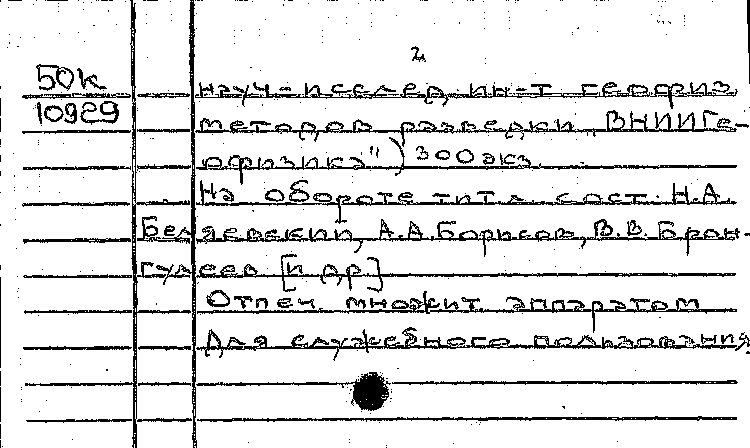 2
50К
10929
науч-исслед. ин-т геофиз.
методов разведки „ВНИИГе-
офизика") 300 экз.
На обороте тит. л. сост. Н.А.
Беляевский, А.А. Борисов, В.В. Бран-
гулеев [и др]
Отпеч. множит. аппаратом
Для служебного пользования